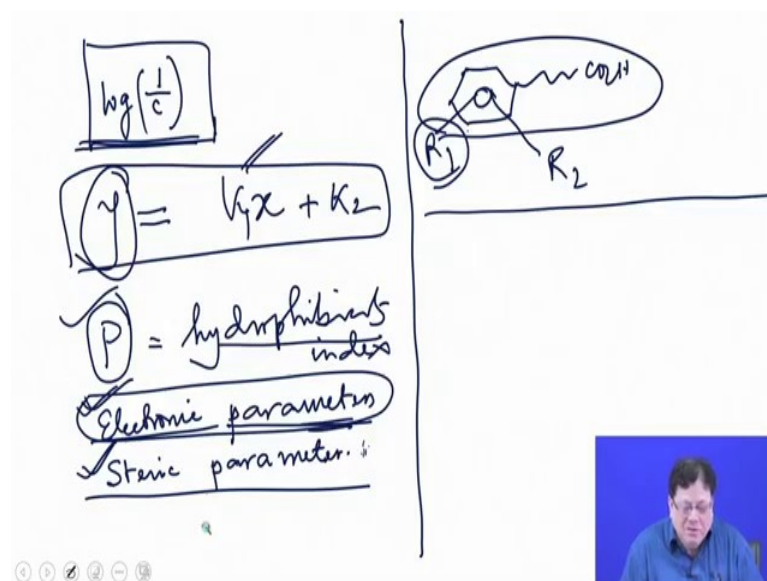 log(1/c)
y = K₁x + K₂
P = hydrophibicity
index
Electronic parameters
Steric parameter.
CO₂H
R₁
R₂